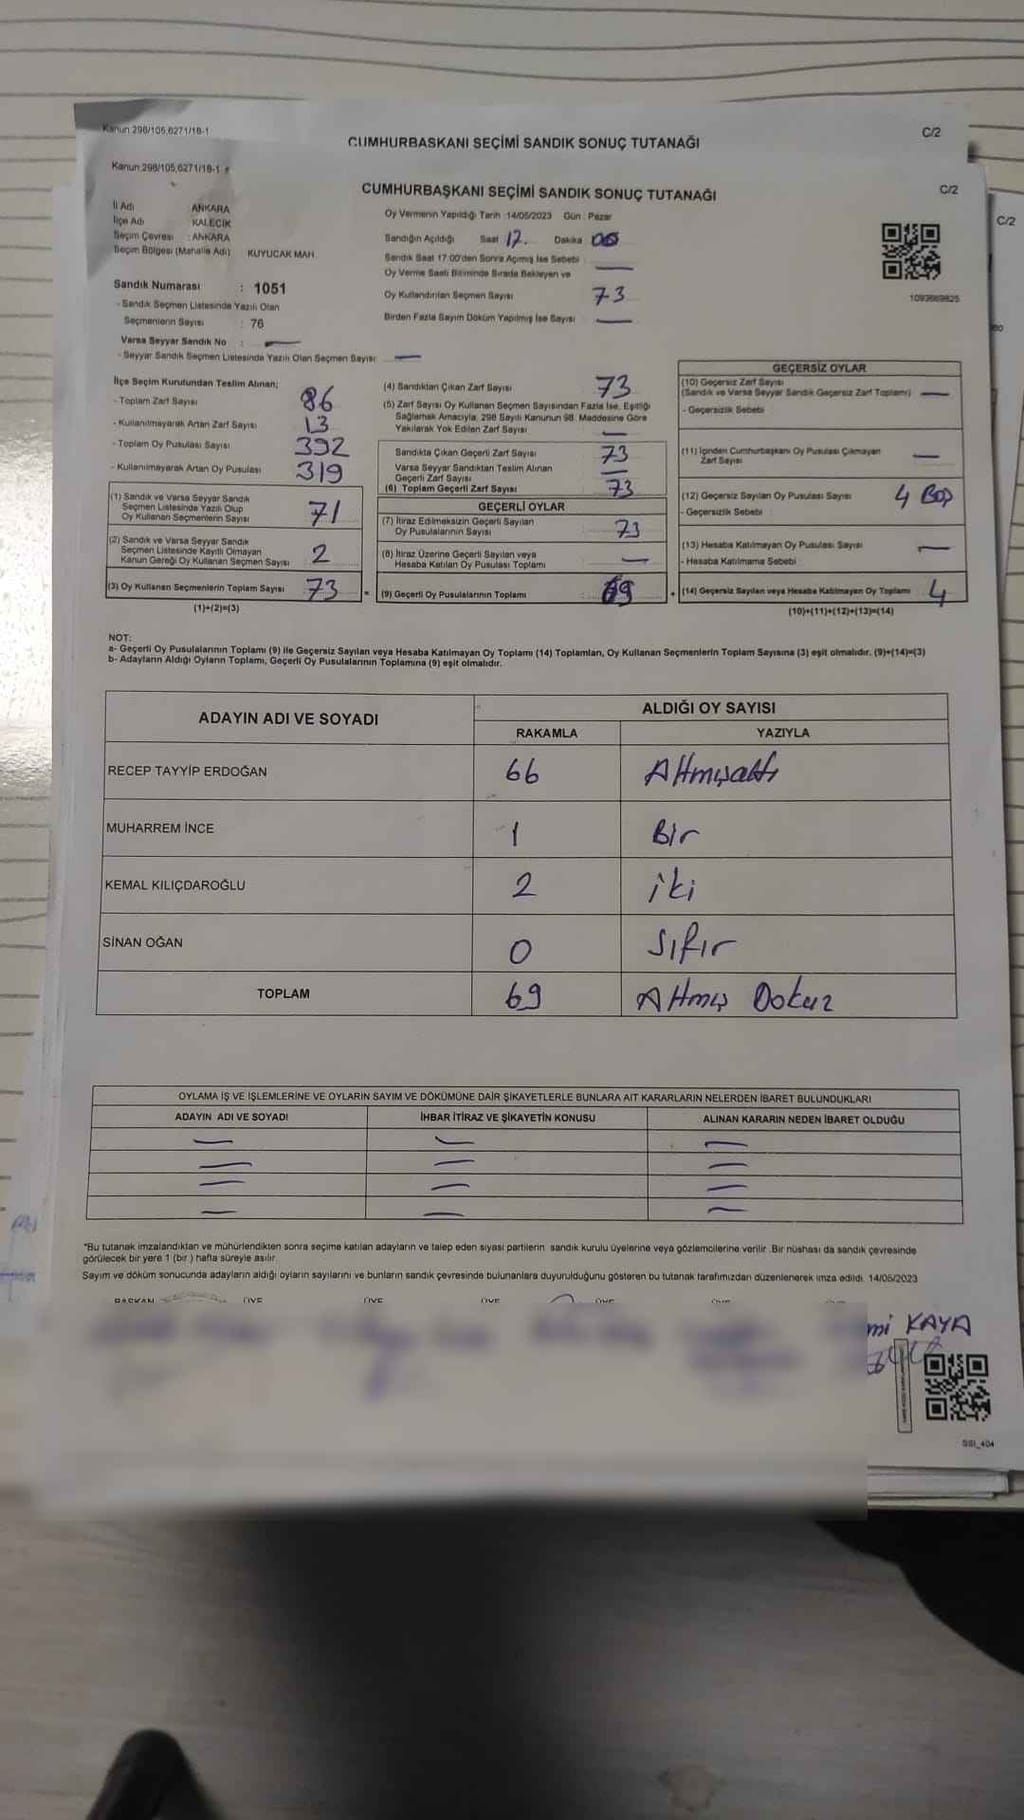 Kanun 298/105,6271/18-1
C/2
CUMHURBAŞKANI SEÇİMİ SANDIK SONUÇ TUTANAĞI
Kanun 298/105,6271/18-1
C/2
CUMHURBAŞKANI SEÇİMİ SANDIK SONUÇ TUTANAĞI
C/2
İl Adı ANKARA
İlçe Adı KALECİK
Seçim Çevresi : ANKARA
Seçim Bölgesi (Mahalle Adı) KUYUCAK MAH.
Oy Vermenin Yapıldığı Tarih : 14/05/2023 Gün : Pazar
Sandığın Açıldığı Saat 17. Dakika 00
Sandık Saat 17:00'den Sonra Açılmış İse Sebebi —
Oy Verme Saati Bitiminde Sırada Bekleyen ve
Oy Kullandırılan Seçmen Sayısı 73
Birden Fazla Sayım Döküm Yapılmış İse Sayısı —
1093669825
Sandık Numarası : 1051
- Sandık Seçmen Listesinde Yazılı Olan
Seçmenlerin Sayısı : 76
Varsa Seyyar Sandık No : —
- Seyyar Sandık Seçmen Listesinde Yazılı Olan Seçmen Sayısı —
İlçe Seçim Kurulundan Teslim Alınan;
- Toplam Zarf Sayısı 86
- Kullanılmayarak Artan Zarf Sayısı 13
- Toplam Oy Pusulası Sayısı 392
- Kullanılmayarak Artan Oy Pusulası 319
(1) Sandık ve Varsa Seyyar Sandık
Seçmen Listesinde Yazılı Olup
Oy Kullanan Seçmenlerin Sayısı 71
(2) Sandık ve Varsa Seyyar Sandık
Seçmen Listesinde Kayıtlı Olmayan
Kanun Gereği Oy Kullanan Seçmen Sayısı 2
(3) Oy Kullanan Seçmenlerin Toplam Sayısı 73
(1)+(2)=(3)
(4) Sandıktan Çıkan Zarf Sayısı 73
(5) Zarf Sayısı Oy Kullanan Seçmen Sayısından Fazla İse, Eşitliği
Sağlamak Amacıyla, 298 Sayılı Kanunun 98. Maddesine Göre
Yakılarak Yok Edilen Zarf Sayısı —
Sandıkta Çıkan Geçerli Zarf Sayısı 73
Varsa Seyyar Sandıktan Teslim Alınan
Geçerli Zarf Sayısı —
(6) Toplam Geçerli Zarf Sayısı 73
GEÇERLİ OYLAR
(7) İtiraz Edilmeksizin Geçerli Sayılan
Oy Pusulalarının Sayısı 73
(8) İtiraz Üzerine Geçerli Sayılan veya
Hesaba Katılan Oy Pusulası Toplamı —
= (9) Geçerli Oy Pusulalarının Toplamı 69
GEÇERSİZ OYLAR
(10) Geçersiz Zarf Sayısı
(Sandık ve Varsa Seyyar Sandık Geçersiz Zarf Toplamı) —
- Geçersizlik Sebebi
(11) İçinden Cumhurbaşkanı Oy Pusulası Çıkmayan
Zarf Sayısı —
(12) Geçersiz Sayılan Oy Pusulası Sayısı 4 BOŞ
- Geçersizlik Sebebi
(13) Hesaba Katılmayan Oy Pusulası Sayısı —
- Hesaba Katılmama Sebebi
+ (14) Geçersiz Sayılan veya Hesaba Katılmayan Oy Toplamı 4
(10)+(11)+(12)+(13)=(14)
NOT:
a- Geçerli Oy Pusulalarının Toplamı (9) ile Geçersiz Sayılan veya Hesaba Katılmayan Oy Toplamı (14) Toplamları, Oy Kullanan Seçmenlerin Toplam Sayısına (3) eşit olmalıdır. (9)+(14)=(3)
b- Adayların Aldığı Oyların Toplamı, Geçerli Oy Pusulalarının Toplamına (9) eşit olmalıdır.
ADAYIN ADI VE SOYADI ALDIĞI OY SAYISI
RAKAMLA YAZIYLA
RECEP TAYYİP ERDOĞAN 66 Altmışaltı
MUHARREM İNCE 1 Bir
KEMAL KILIÇDAROĞLU 2 iki
SİNAN OĞAN 0 Sıfır
TOPLAM 69 Altmış Dokuz
OYLAMA İŞ VE İŞLEMLERİNE VE OYLARIN SAYIM VE DÖKÜMÜNE DAİR ŞİKAYETLERLE BUNLARA AİT KARARLARIN NELERDEN İBARET BULUNDUKLARI
ADAYIN ADI VE SOYADI İHBAR İTİRAZ VE ŞİKAYETİN KONUSU ALINAN KARARIN NEDEN İBARET OLDUĞU
— — —
— — —
— — —
— — —
*Bu tutanak imzalandıktan ve mühürlendikten sonra seçime katılan adayların ve talep eden siyasi partilerin sandık kurulu üyelerine veya gözlemcilerine verilir. Bir nüshası da sandık çevresinde
görülecek bir yere 1 (bir ) hafta süreyle asılır.
Sayım ve döküm sonucunda adayların aldığı oyların sayılarını ve bunların sandık çevresinde bulunanlara duyurulduğunu gösteren bu tutanak tarafımızdan düzenlenerek imza edildi. 14/05/2023
BAŞKAN ÜYE ÜYE ÜYE ÜYE
mi KAYA
SSI_404